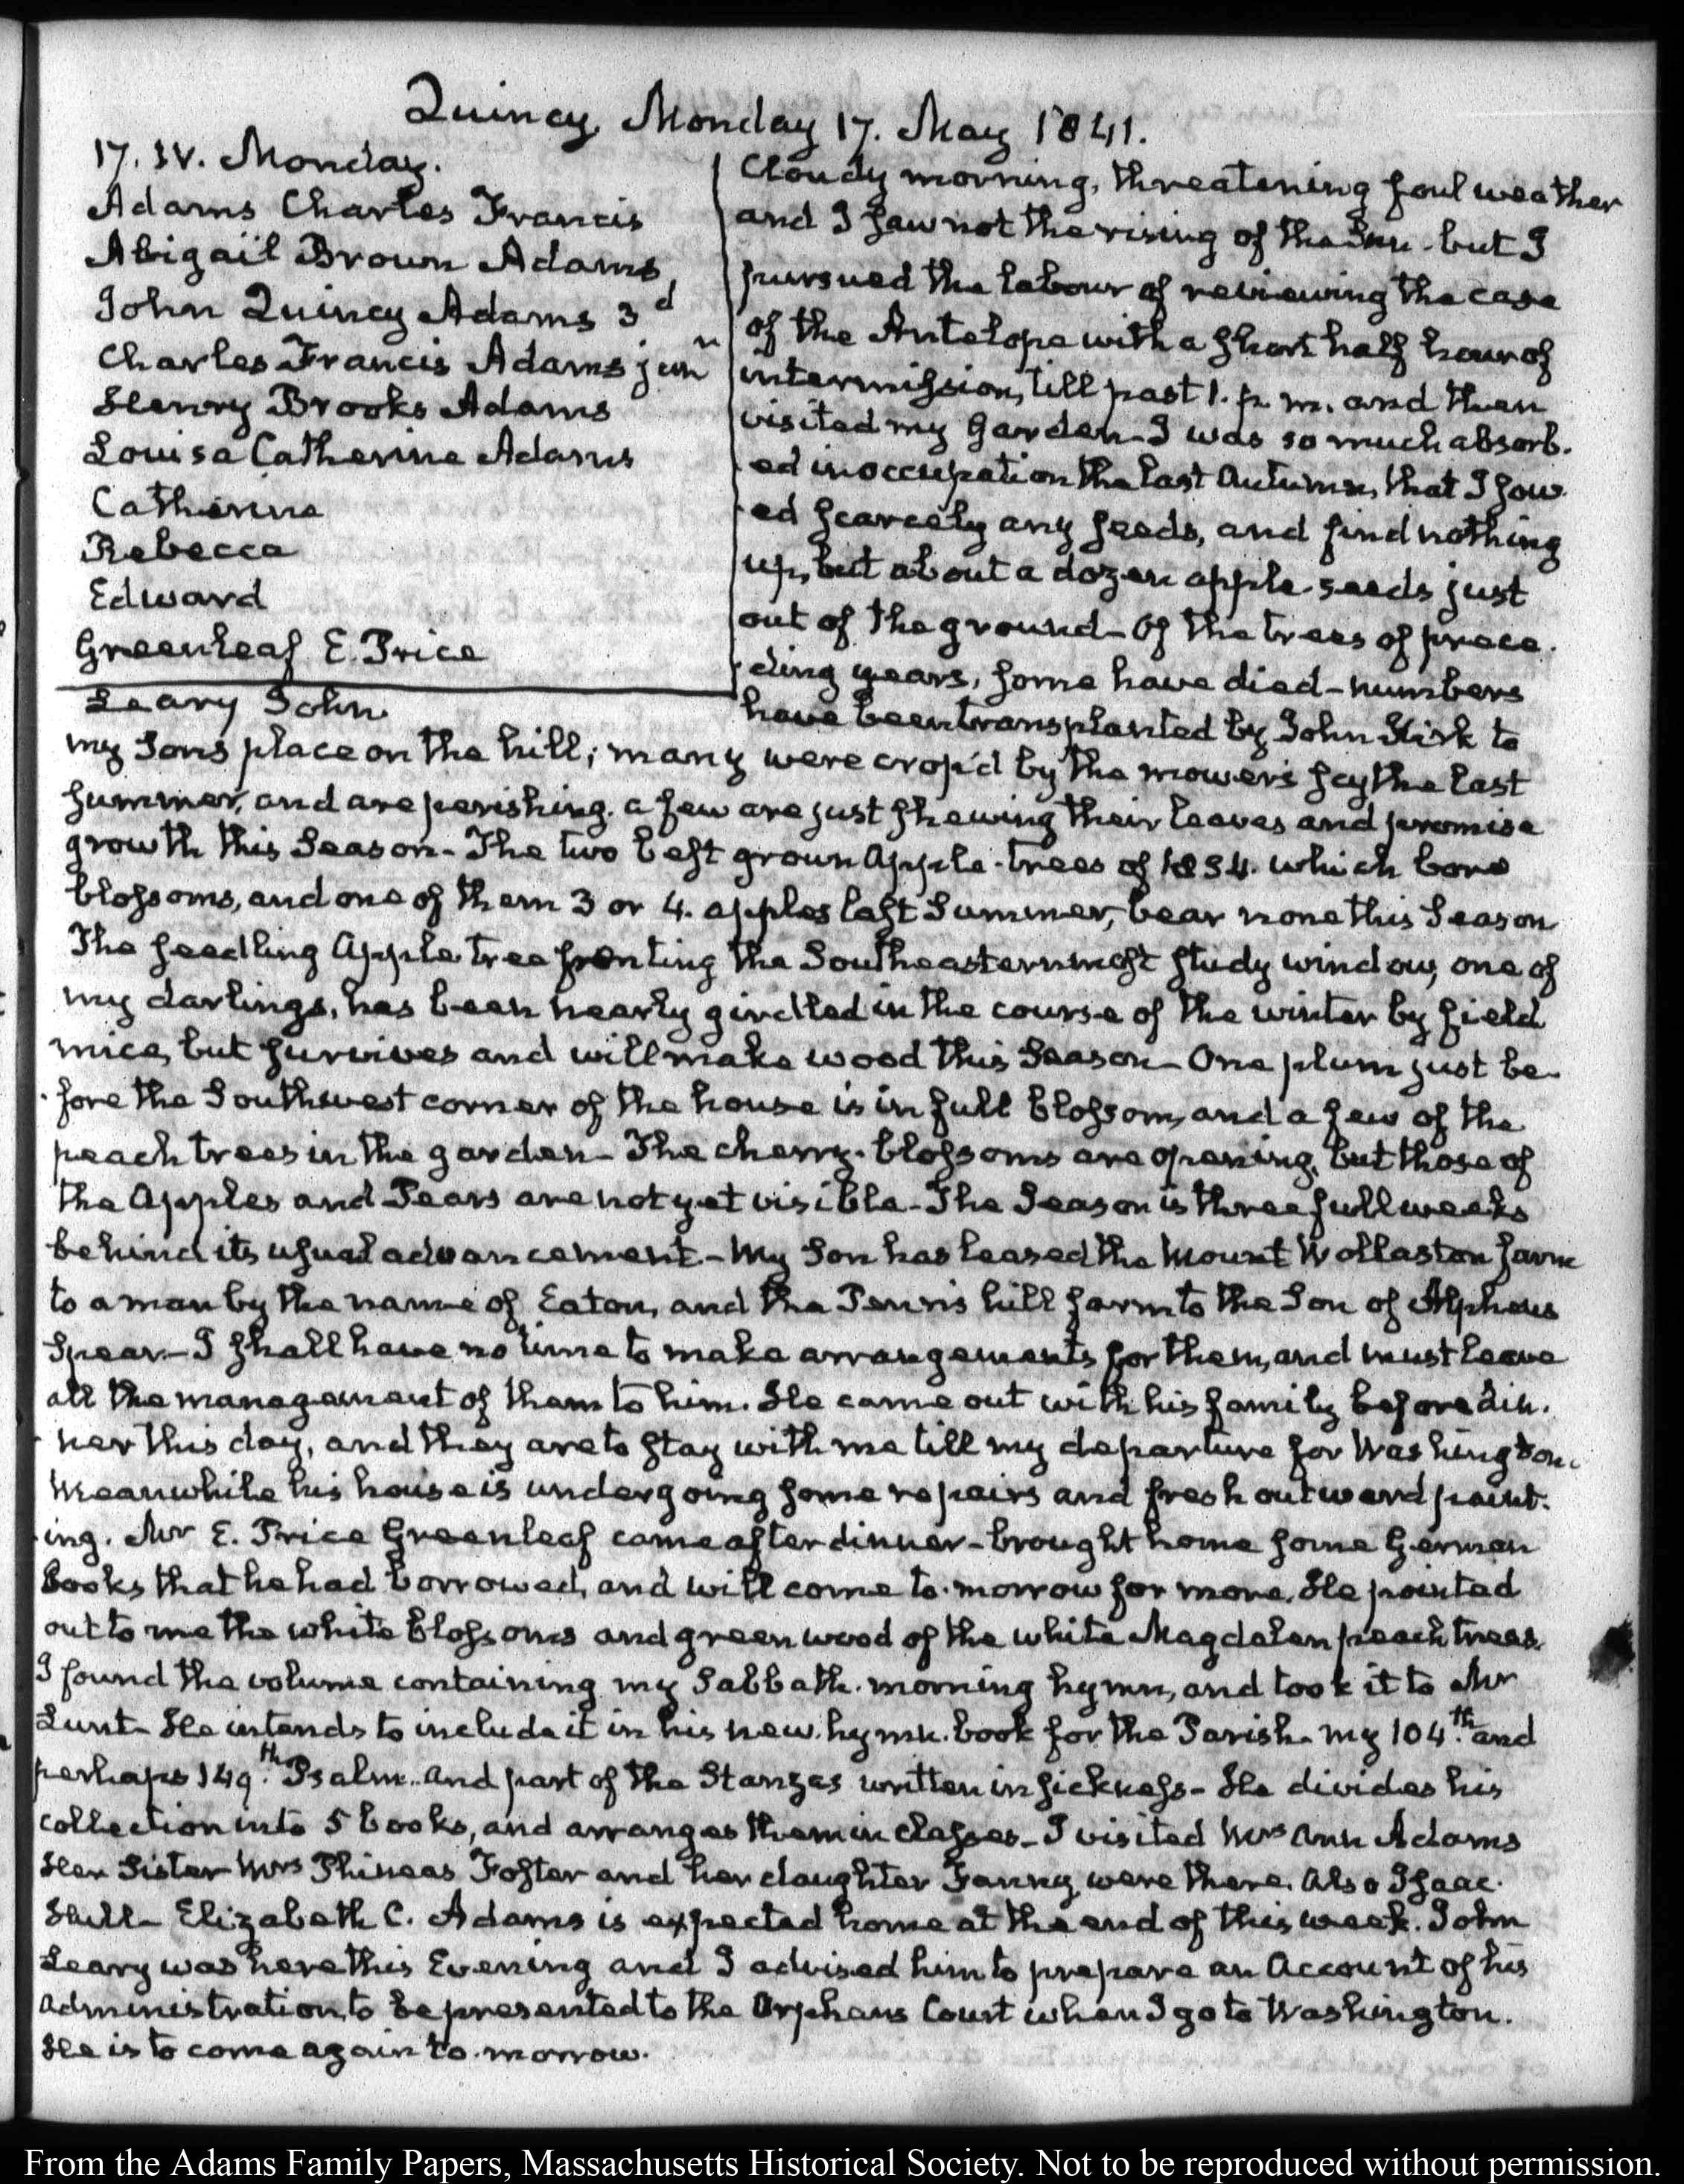 Quincy, Monday 17. May 1841.
17. IV. Monday.
Adams Charles Francis
Abigail Brown Adams
John Quincy Adams 3d
Charles Francis Adams junr
Henry Brooks Adams
Louisa Catherine Adams
Catherine
Rebecca
Edward
Greenleaf E. Price
Leary John
Cloudy morning, threatening foul weather
and I saw not the rising of the Sun - but I
pursued the labour of reviewing the case
of the Antelope with a short half hour of
intermission, till past 1. p. m. and then
visited my Garden - I was so much absorb-
ed in occupation the last Autumn, that I sow-
ed scarcely any seeds, and find nothing
up, but about a dozen apple-seeds just
out of the ground - Of the trees of prece-
ding years, some have died - numbers
have been transplanted by John Kirk to
my Sons place on the hill; many were crop'd by the mower's scythe last
summer, and are perishing. a few are just shewing their leaves and promise
growth this Season - The two best grown Apple-trees of 1834. which bore
blossoms, and one of them 3 or 4. apples last Summer, bear none this Season
The seedling Apple tree fronting the Southeasternmost study window, one of
my darlings, has been nearly girdled in the course of the winter by field
mice, but survives and will make wood this Season - One plum just be-
fore the Southwest corner of the house is in full blossom, and a few of the
peach trees in the garden - The cherry-blossoms are opening, but those of
the Apples and Pears are not yet visible - The Season is three full weeks
behind its usual advancement - My Son has leased the Mount Wollaston farm
to a man by the name of Eaton, and the Penn's hill farm to the Son of Alpheus
Spear - I shall have no time to make arrangements for them, and must leave
all the management of them to him. He came out with his family before din-
ner this day, and they are to stay with me till my departure for Washington.
Meanwhile his house is undergoing some repairs and fresh outward paint-
ing. Mr E. Price Greenleaf came after dinner - brought home some German
books that he had borrowed, and will come to-morrow for more. He pointed
out to me the white blossoms and green wood of the white Magdalen peach trees.
I found the volume containing my Sabbath-morning hymn, and took it to Mr
Lunt - He intends to include it in his new hymn-book for the Parish - my 104th. and
perhaps 149th. Psalm - and part of the Stanzas written in sickness - He divides his
collection into 5 books, and arranges them in classes - I visited Mrs Ann Adams
Her Sister Mrs Phineas Foster and her daughter Fanny were there. Also Isaac
Hull - Elizabeth C. Adams is expected home at the end of this week. John
Leary was here this Evening and I advised him to prepare an Account of his
administration to be presented to the Orphans Court when I go to Washington.
He is to come again to-morrow.
From the Adams Family Papers, Massachusetts Historical Society. Not to be reproduced without permission.